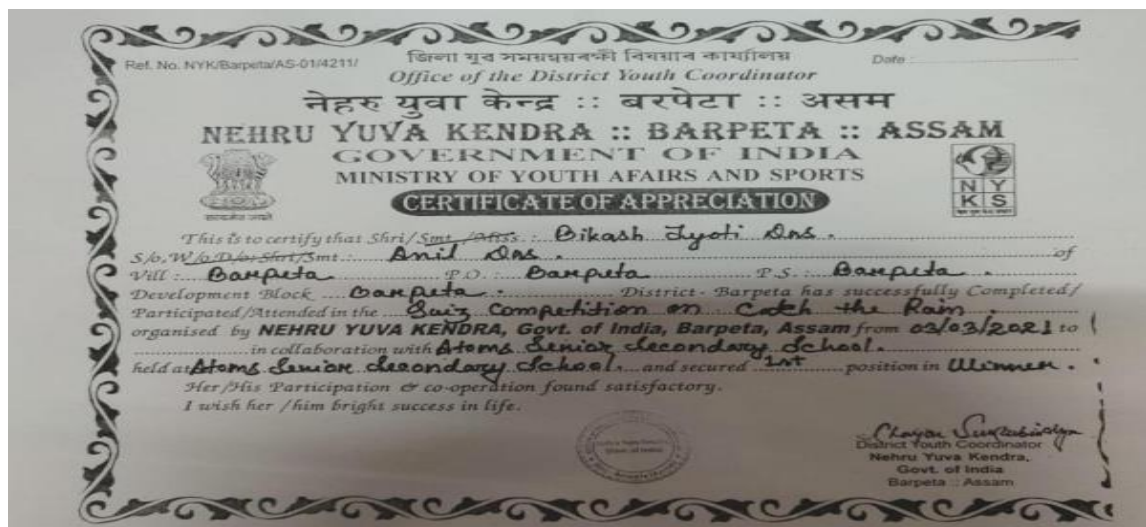 Ref. No. NYK/Barpeta/AS-01/4211/
Date :
Office of the District Youth Coordinator
नेहरु युवा केन्द्र :: बरपेटा :: असम
NEHRU YUVA KENDRA :: BARPETA :: ASSAM
GOVERNMENT OF INDIA
MINISTRY OF YOUTH AFAIRS AND SPORTS
सत्यमेव जयते
N Y
K S
CERTIFICATE OF APPRECIATION
This is to certify that Shri/Smt./Miss : Bikash Jyoti Das.
S/o, W/o D/o: Shri/Smt.: Anil Das. of
Vill : Barpeta P.O : Barpeta P.S : Barpeta.
Development Block Barpeta. District - Barpeta has successfully Completed/
Participated/Attended in the Quiz Competition on Catch the Rain.
organised by NEHRU YUVA KENDRA, Govt. of India, Barpeta, Assam from 03/03/2021 to
in collaboration with Atoms Senior Secondary School.
held at Atoms Senior Secondary School. and secured 1st position in Winner.
Her/His Participation & co-operation found satisfactory.
I wish her /him bright success in life.
District Youth Coordinator
Nehru Yuva Kendra,
Govt. of India
Barpeta :: Assam